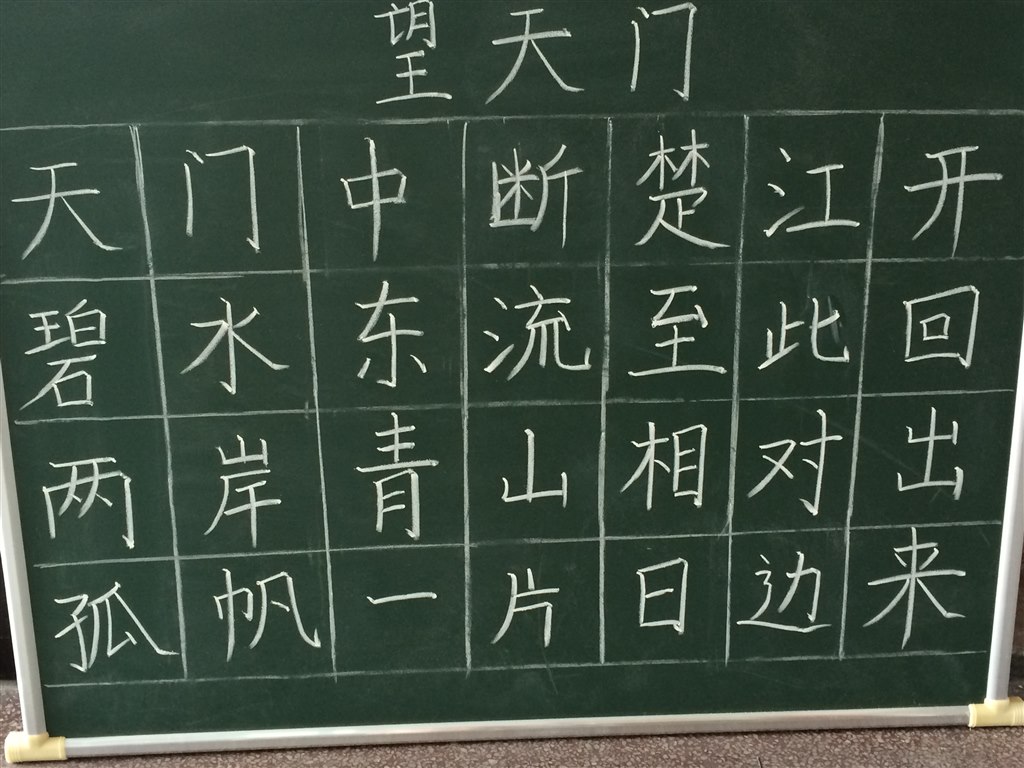 望天门
天门中断楚江开
碧水东流至此回
两岸青山相对出
孤帆一片日边来